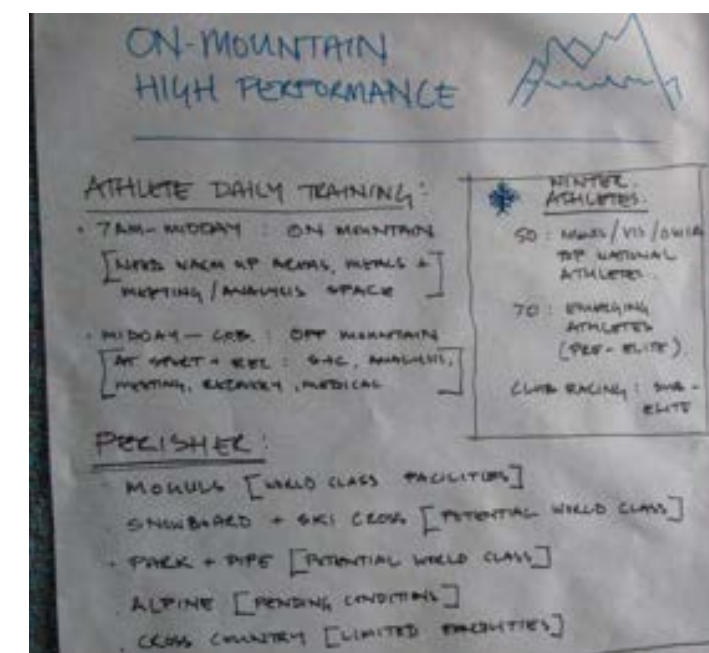 ON-MOUNTAIN
HIGH PERFORMANCE
ATHLETE DAILY TRAINING:
• 7AM-MIDDAY : ON MOUNTAIN
[NEED WARM UP AREAS, MEALS +
MEETING/ANALYSIS SPACE]
• MIDDAY - COB : OFF MOUNTAIN
[AT SPORT + REC : S+C, ANALYSIS,
MEETING, RECOVERY, MEDICAL]
WINTER
ATHLETES.
50 : NSWIS/VIS/OWIA
TOP NATIONAL
ATHLETES.
70 : EMERGING
ATHLETES
(PRE-ELITE).
CLUB RACING : SUB-
ELITE
PERISHER:
• MOGULS [WORLD CLASS FACILITIES]
• SNOWBOARD + SKI CROSS [POTENTIAL WORLD CLASS]
• PARK + PIPE [POTENTIAL WORLD CLASS]
• ALPINE [PENDING CONDITIONS]
• CROSS COUNTRY [LIMITED FACILITIES]